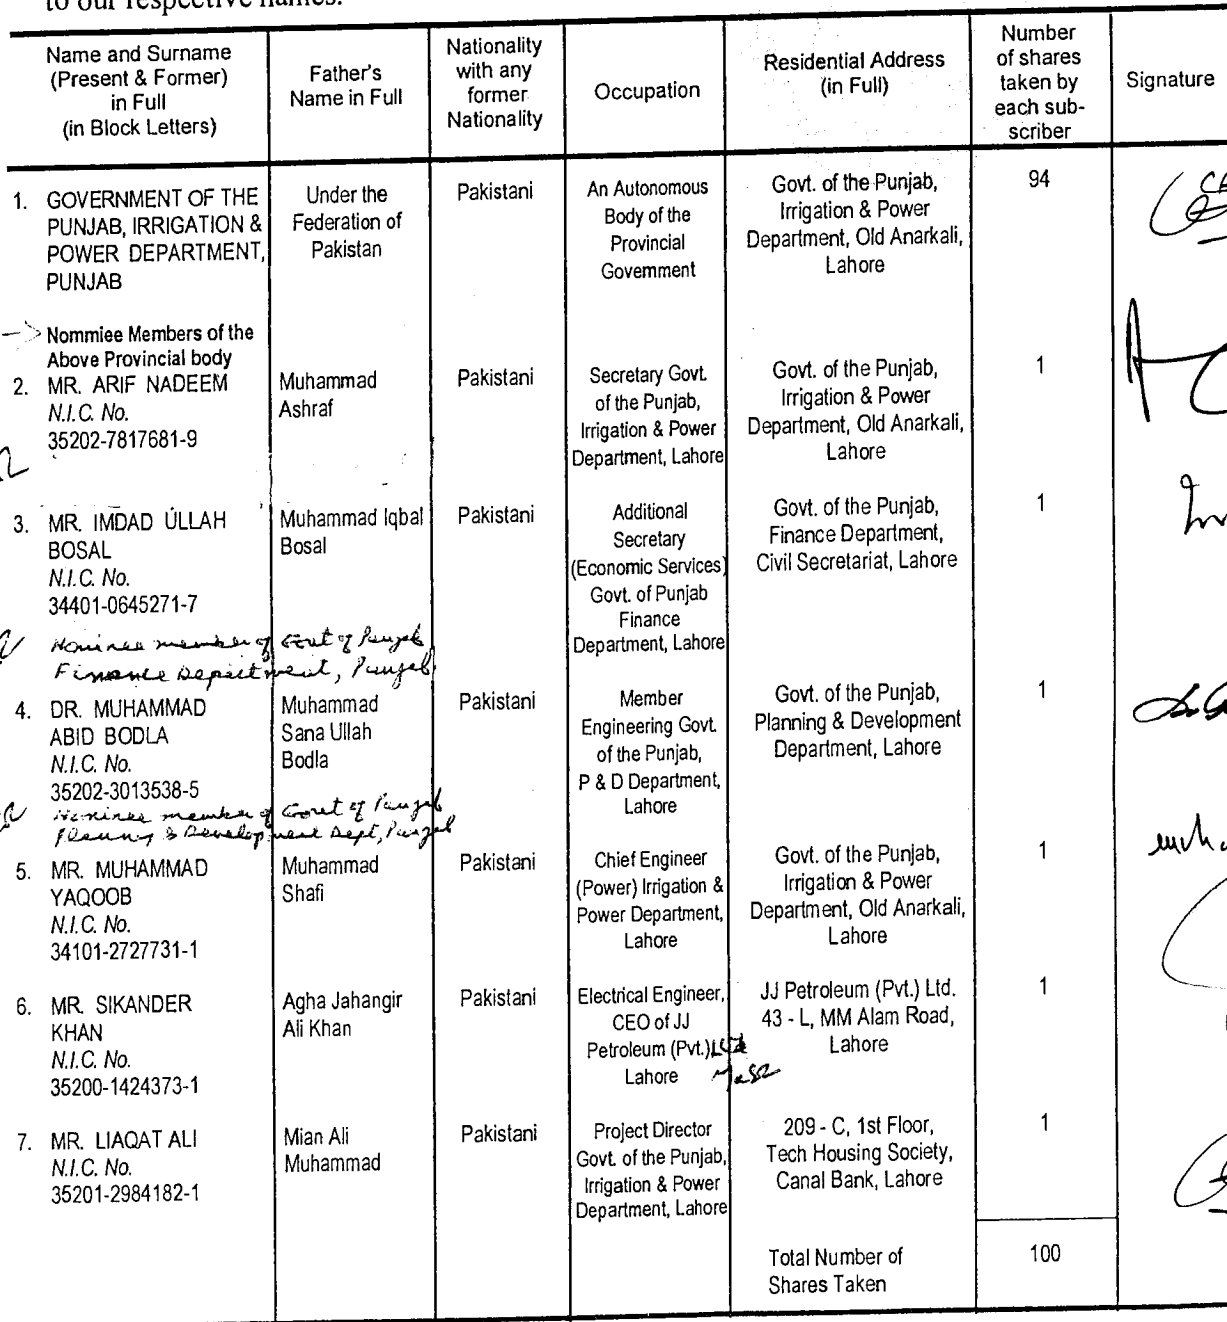 to our respective names.
Name and Surname
(Present & Former)
in Full
(in Block Letters)
Father's
Name in Full
Nationality
with any
former
Nationality
Occupation
Residential Address
(in Full)
Number
of shares
taken by
each sub-
scriber
Signature
1. GOVERNMENT OF THE
PUNJAB, IRRIGATION &
POWER DEPARTMENT,
PUNJAB
Under the
Federation of
Pakistan
Pakistani
An Autonomous
Body of the
Provincial
Government
Govt. of the Punjab,
Irrigation & Power
Department, Old Anarkali,
Lahore
94
Nommiee Members of the
Above Provincial body
2. MR. ARIF NADEEM
N.I.C. No.
35202-7817681-9
Muhammad
Ashraf
Pakistani
Secretary Govt.
of the Punjab,
Irrigation & Power
Department, Lahore
Govt. of the Punjab,
Irrigation & Power
Department, Old Anarkali,
Lahore
1
3. MR. IMDAD ULLAH
BOSAL
N.I.C. No.
34401-0645271-7
Muhammad Iqbal
Bosal
Pakistani
Additional
Secretary
(Economic Services)
Govt. of Punjab
Finance
Department, Lahore
Govt. of the Punjab,
Finance Department,
Civil Secretariat, Lahore
1
Nominee member of Govt of Punjab
Finance Department, Punjab
4. DR. MUHAMMAD
ABID BODLA
N.I.C. No.
35202-3013538-5
Muhammad
Sana Ullah
Bodla
Pakistani
Member
Engineering Govt.
of the Punjab,
P & D Department,
Lahore
Govt. of the Punjab,
Planning & Development
Department, Lahore
1
Nominee member of Govt of Punjab
Planning & Development Dept, Punjab
5. MR. MUHAMMAD
YAQOOB
N.I.C. No.
34101-2727731-1
Muhammad
Shafi
Pakistani
Chief Engineer
(Power) Irrigation &
Power Department,
Lahore
Govt. of the Punjab,
Irrigation & Power
Department, Old Anarkali,
Lahore
1
6. MR. SIKANDER
KHAN
N.I.C. No.
35200-1424373-1
Agha Jahangir
Ali Khan
Pakistani
Electrical Engineer,
CEO of JJ
Petroleum (Pvt.) Ltd
Lahore
JJ Petroleum (Pvt.) Ltd.
43 - L, MM Alam Road,
Lahore
1
7. MR. LIAQAT ALI
N.I.C. No.
35201-2984182-1
Mian Ali
Muhammad
Pakistani
Project Director
Govt. of the Punjab,
Irrigation & Power
Department, Lahore
209 - C, 1st Floor,
Tech Housing Society,
Canal Bank, Lahore
1
Total Number of
Shares Taken
100